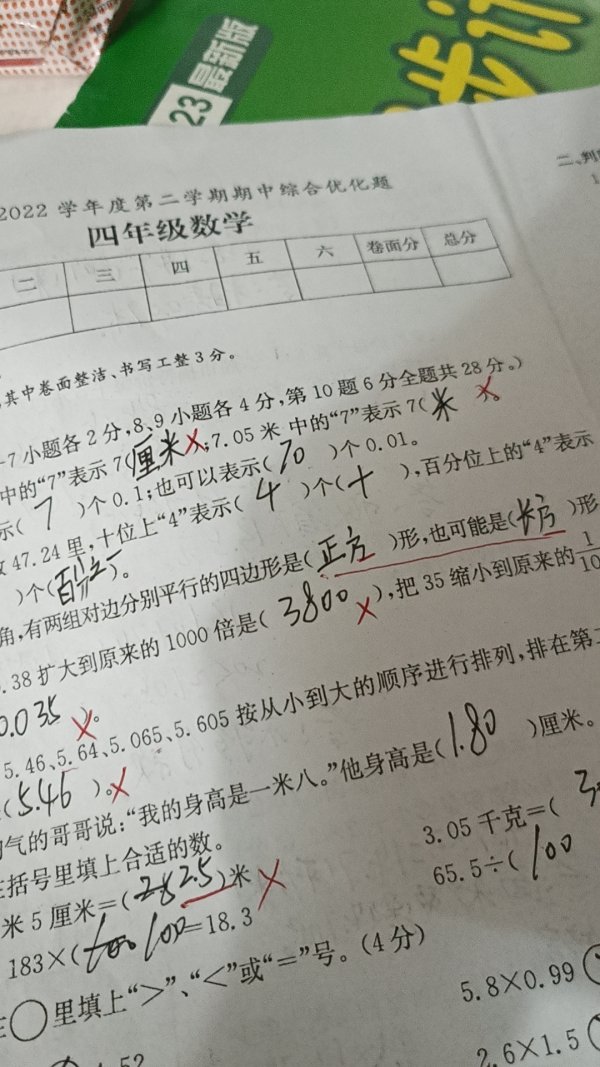 23 最新版
2022 学年度第二学期期中综合优化题
四年级数学
二、判
二 三 四 五 六 卷面分 总分
其中卷面整洁、书写工整 3 分。
-7 小题各 2 分,8、9 小题各 4 分,第 10 题 6 分全题共 28 分。)
中的“7”表示 7(厘米);7.05 米 中的“7”表示 7(米
示( 7 )个 0.1;也可以表示( 70 )个 0.01。
47.24 里,十位上“4”表示( 4 )个(十 ),百分位上的“4”表示
)个(百分之)。
角,有两组对边分别平行的四边形是(正方 )形,也可能是(长方 )形
.38 扩大到原来的 1000 倍是( 3800 ),把 35 缩小到原来的1/10
0.035 )。
5.46、5.64、5.065、5.605 按从小到大的顺序进行排列,排在第
( 5.46 )。
气的哥哥说:“我的身高是一米八。”他身高是( 1.80 )厘米。
括号里填上合适的数。
3.05 千克=(
米 5 厘米=( 2.5 )米
65.5÷( 100
183×( 100=18.3
○里填上“>”、“<”或“=”号。(4 分)
5.8×0.99
2.6×1.5
.52